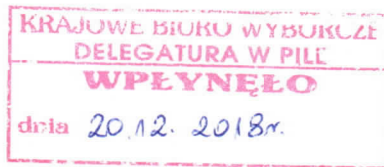 KRAJOWE BIURO WYBORCZE
DELEGATURA W PILE
WPŁYNĘŁO
dnia 20.12. 2018r.